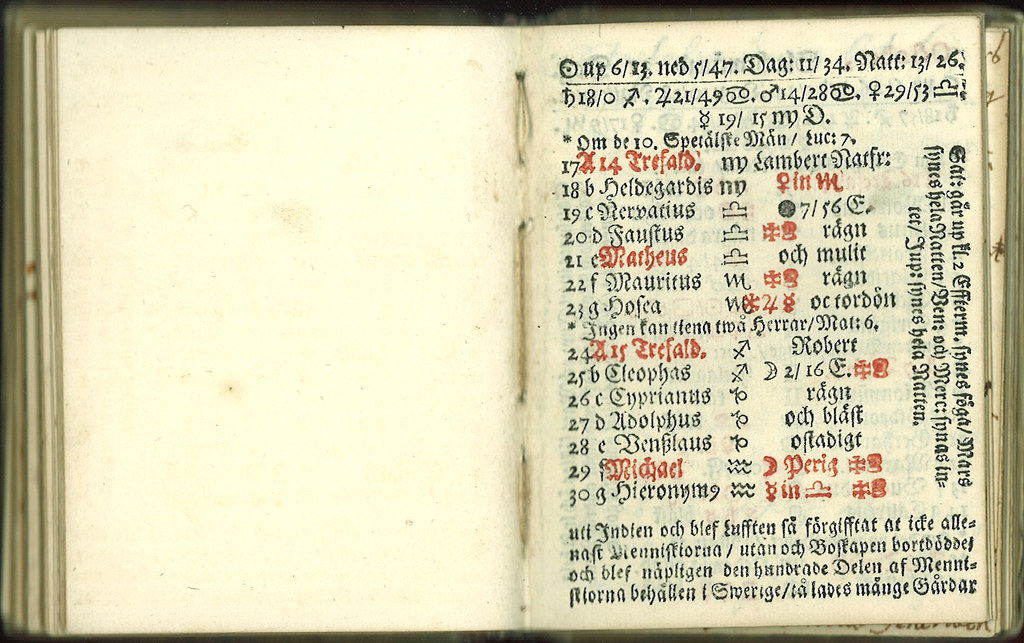 ☉ up 6/13. ned 5/47. Dag: 11/34. Natt: 13/26.
♄ 18/0 ♐. ♃ 21/49 ♋. ♂ 14/28 ♋. ♀ 29/53 ♎
☿ 19/15 ♍ D.
* Om de 10. Spetälske Män / Luc: 7.
17 A 14 Trefald. ♍ Lambert Natfr:
18 b Heldegardis ♍ ♀ in ♏
19 c Nervatius ♎ ● 7/56 E.
20 d Faustus ♎ rägn
21 e Matheus ♎ och mulit
22 f Mauritus ♏ rägn
23 g Hosea ♏ ♃ ☿ oc tordön
* Ingen kan tiena twå Herrar / Mat: 6.
24 A 15 Trefald. ♐ Robert
25 b Cleophas ♐ ☽ 2/16 E.
26 c Cyprianus ♑ rägn
27 d Adolphus ♑ och bläst
28 e Venßlaus ♑ ostadigt
29 f Michael ♒ ☽ Perig
30 g Hieronym9 ♒ ☿ in ♎
Sat: går up kl. 2 Efterm. synes föga / Mars
synes hela Natten / Ven: och Merc: synas in-
tet / Jup: synes hela Natten.
uti Indien och blef Lufften så förgifftat at icke alle-
nast Menniskiorna / utan och Boskapen bortdödde /
och blef näpligen den hundrade Delen af Menni-
skiorna behållen i Swerige / tå lades månge Gårdar